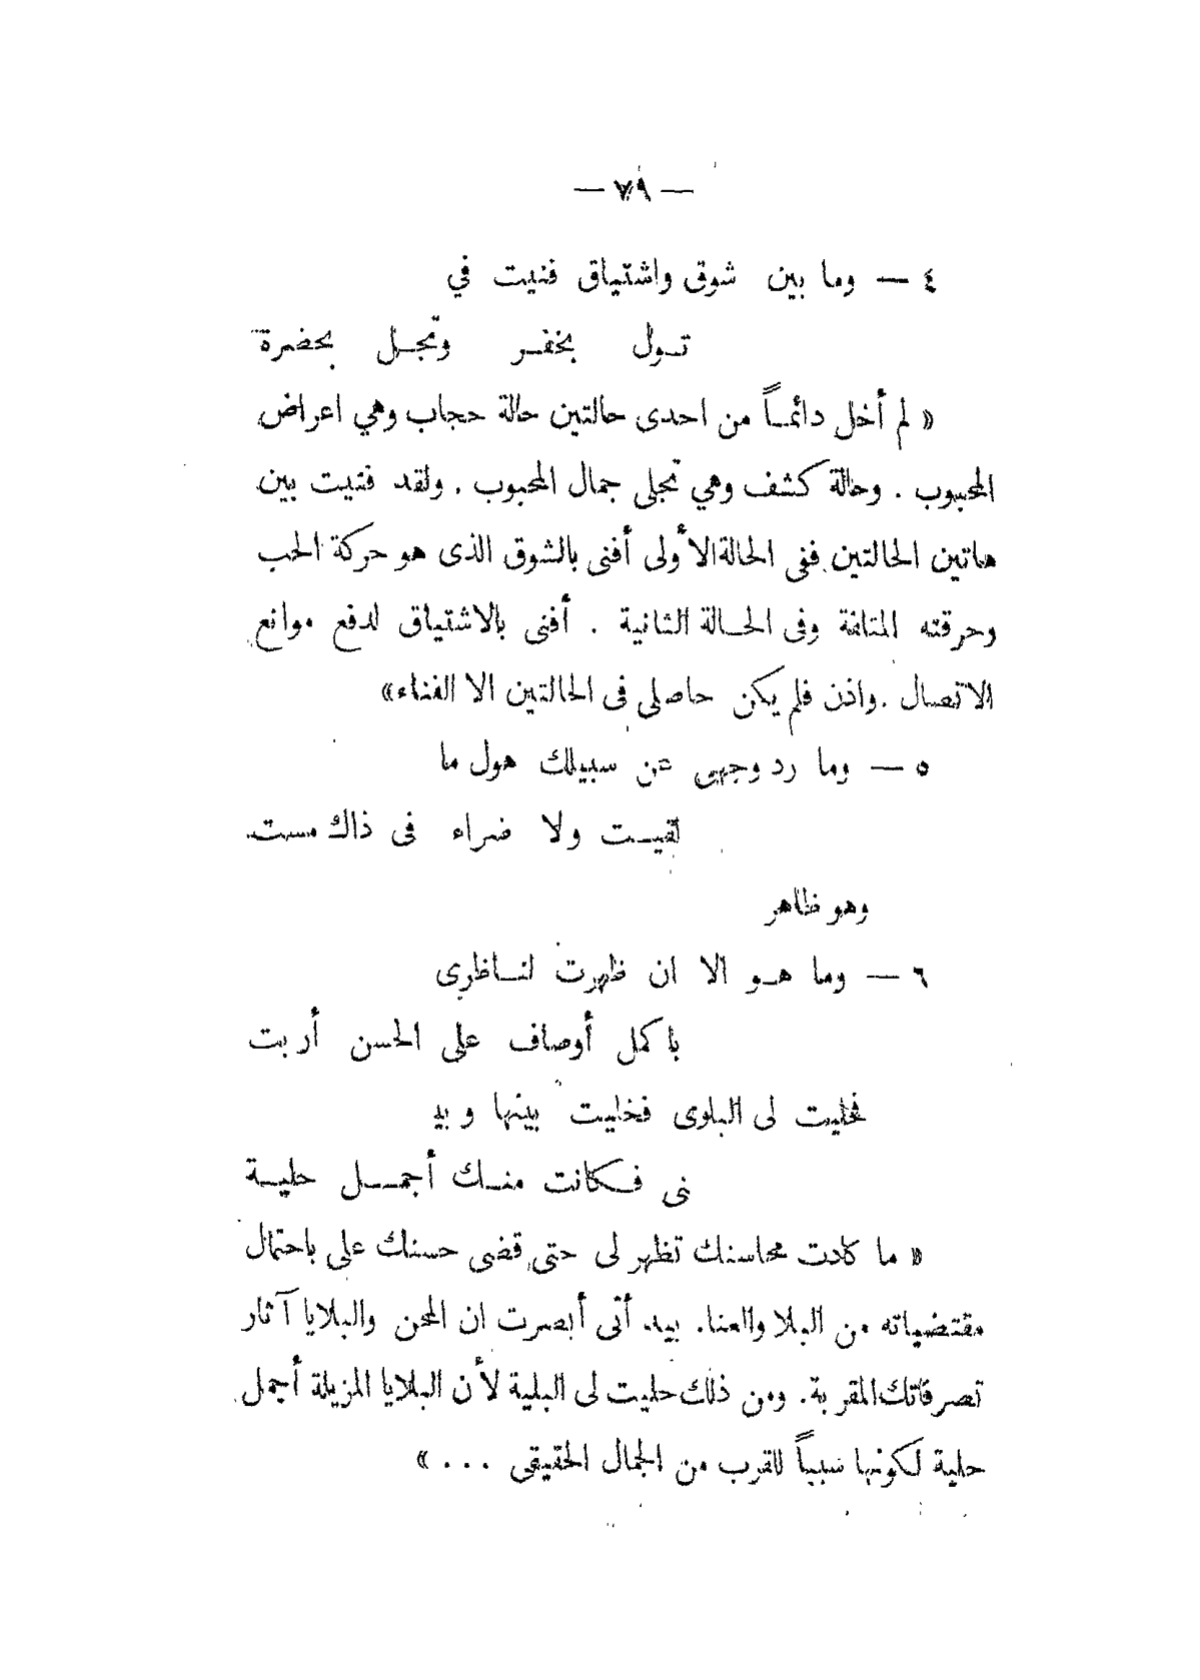 — ٧٩ —
٤ — وما بين شوق واشتياق فنيت في
تـول بخفـر وتجـل بحضرة
« لم أخل دائمـاً من احدى حالتين حالة حجاب وهي اعراض
المحبوب . وحالة كشف وهي تجلى جمال المحبوب . ولقد فنيت بين
هاتين الحالتين ففى الحالة الأولى أفنى بالشوق الذى هو حركة الحب
وحرقته المتلفة وفى الحـالة الثانية . أفنى بالاشتياق لدفع موانع
الاتصال . واذن فلم يكن حاصلى فى الحالتين الا الفناء»
٥ — وما رد وجهى عن سبيلك هول ما
لقيـت ولا ضراء فى ذاك مست
وهو ظاهر
٦ — وما هـو الا ان ظهرت لنـاظرى
باكمل أوصاف على الحسن أربت
فحليت لى البلوى فخليت بينها وبيـ
نى فـكانت منـك أجمـل حليـة
« ما كادت محاسنك تظهر لى حتى قضى حسنك على باحتمال
مقتضياته من البلا والعنا. بيد أنى أبصرت ان المحن والبلايا آثار
تصرفاتك المقربة. ومن ذلك حليت لى البلية لأن البلايا المزيلة أجمل
حلية لكونها سبباً للقرب من الجمال الحقيقى . . . »